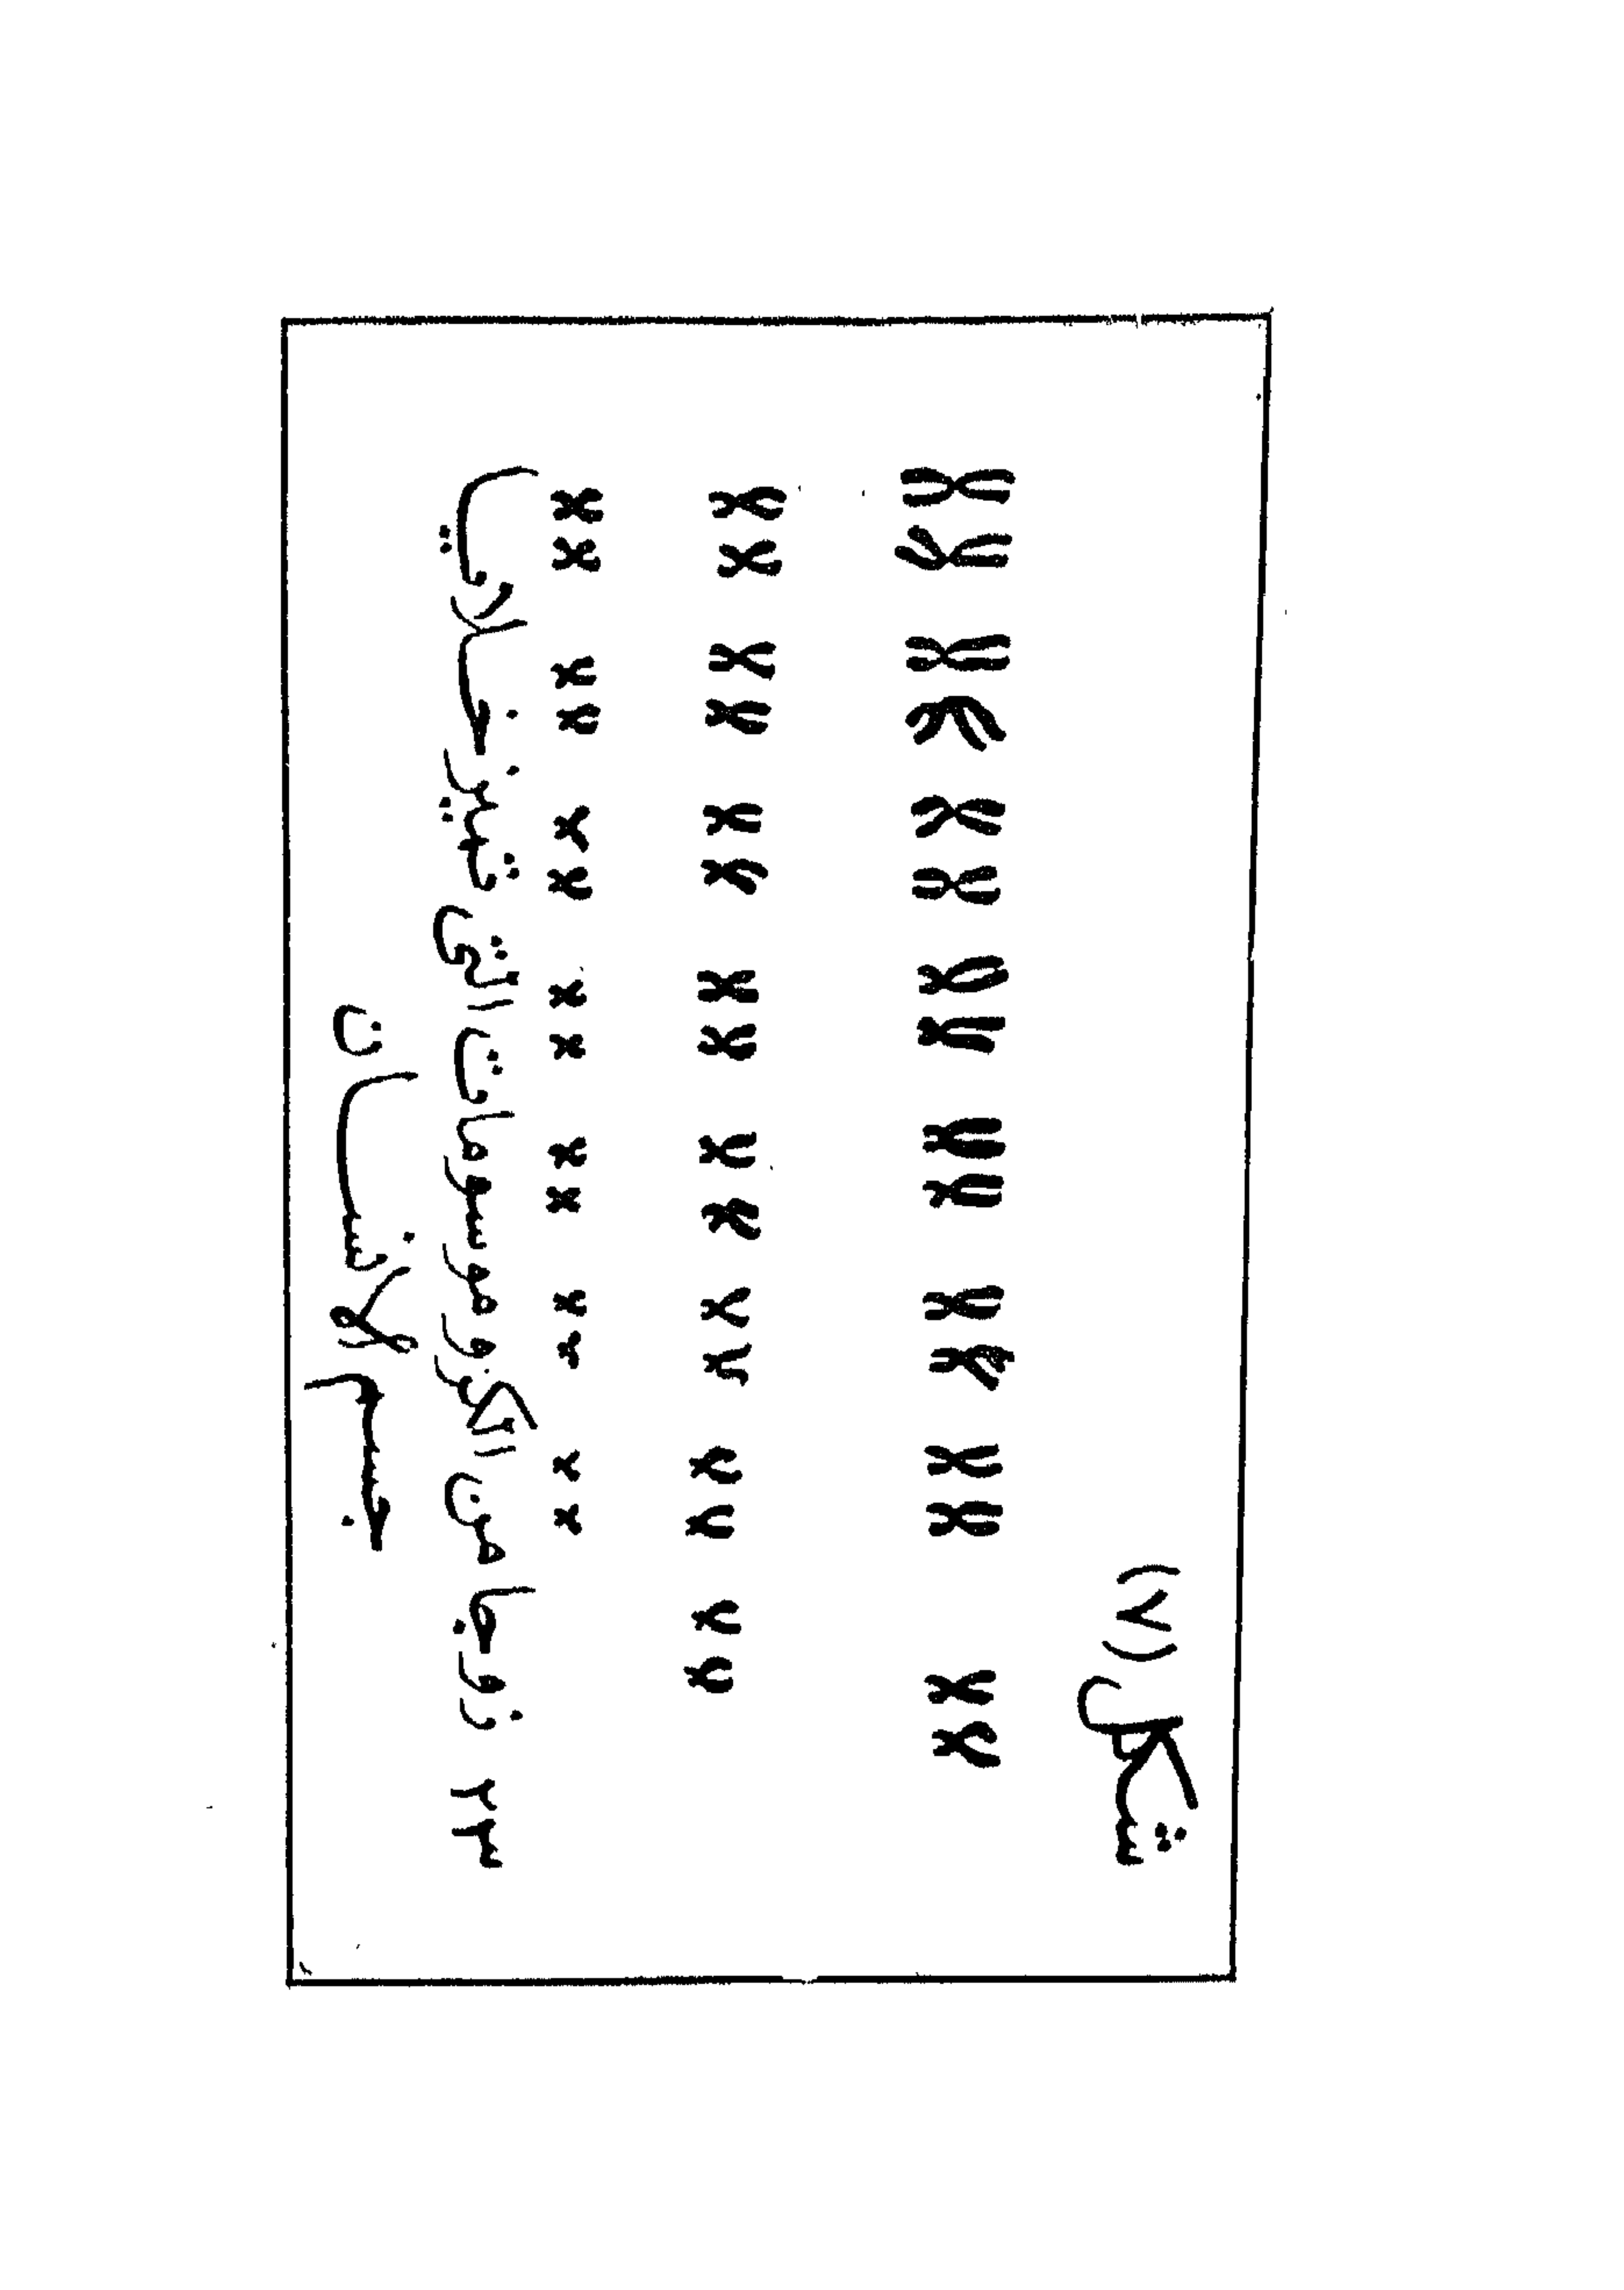 شكل (٧)
٢٣ زوجا من الكروموسومات التي تميز خلايا
جسم الانسان